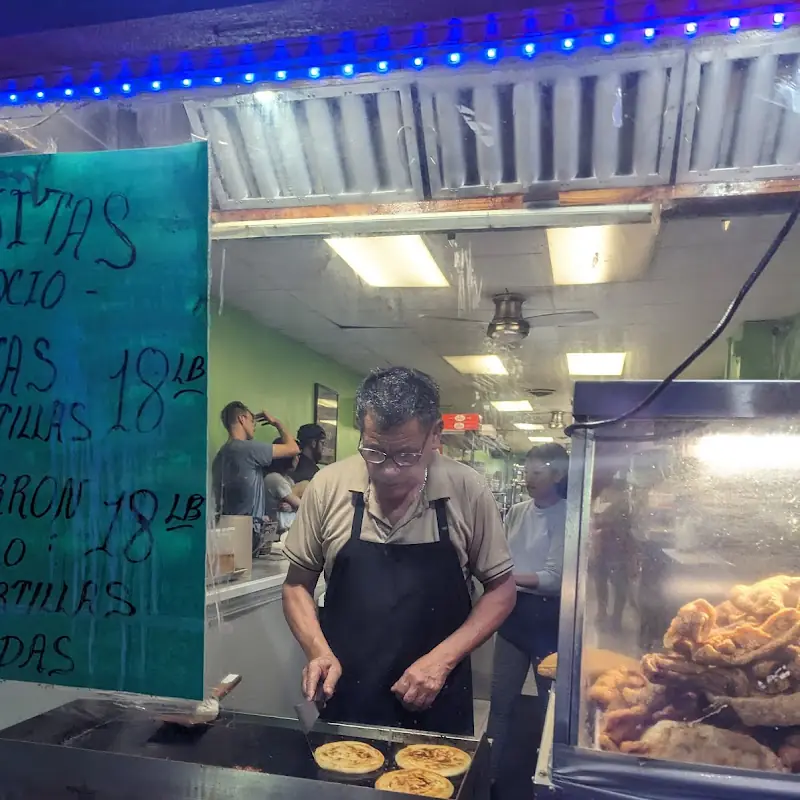 ITAS
OCIO -
AS 18 LB
TILLAS
RRON 18 LB
O :
RTILLAS
DAS